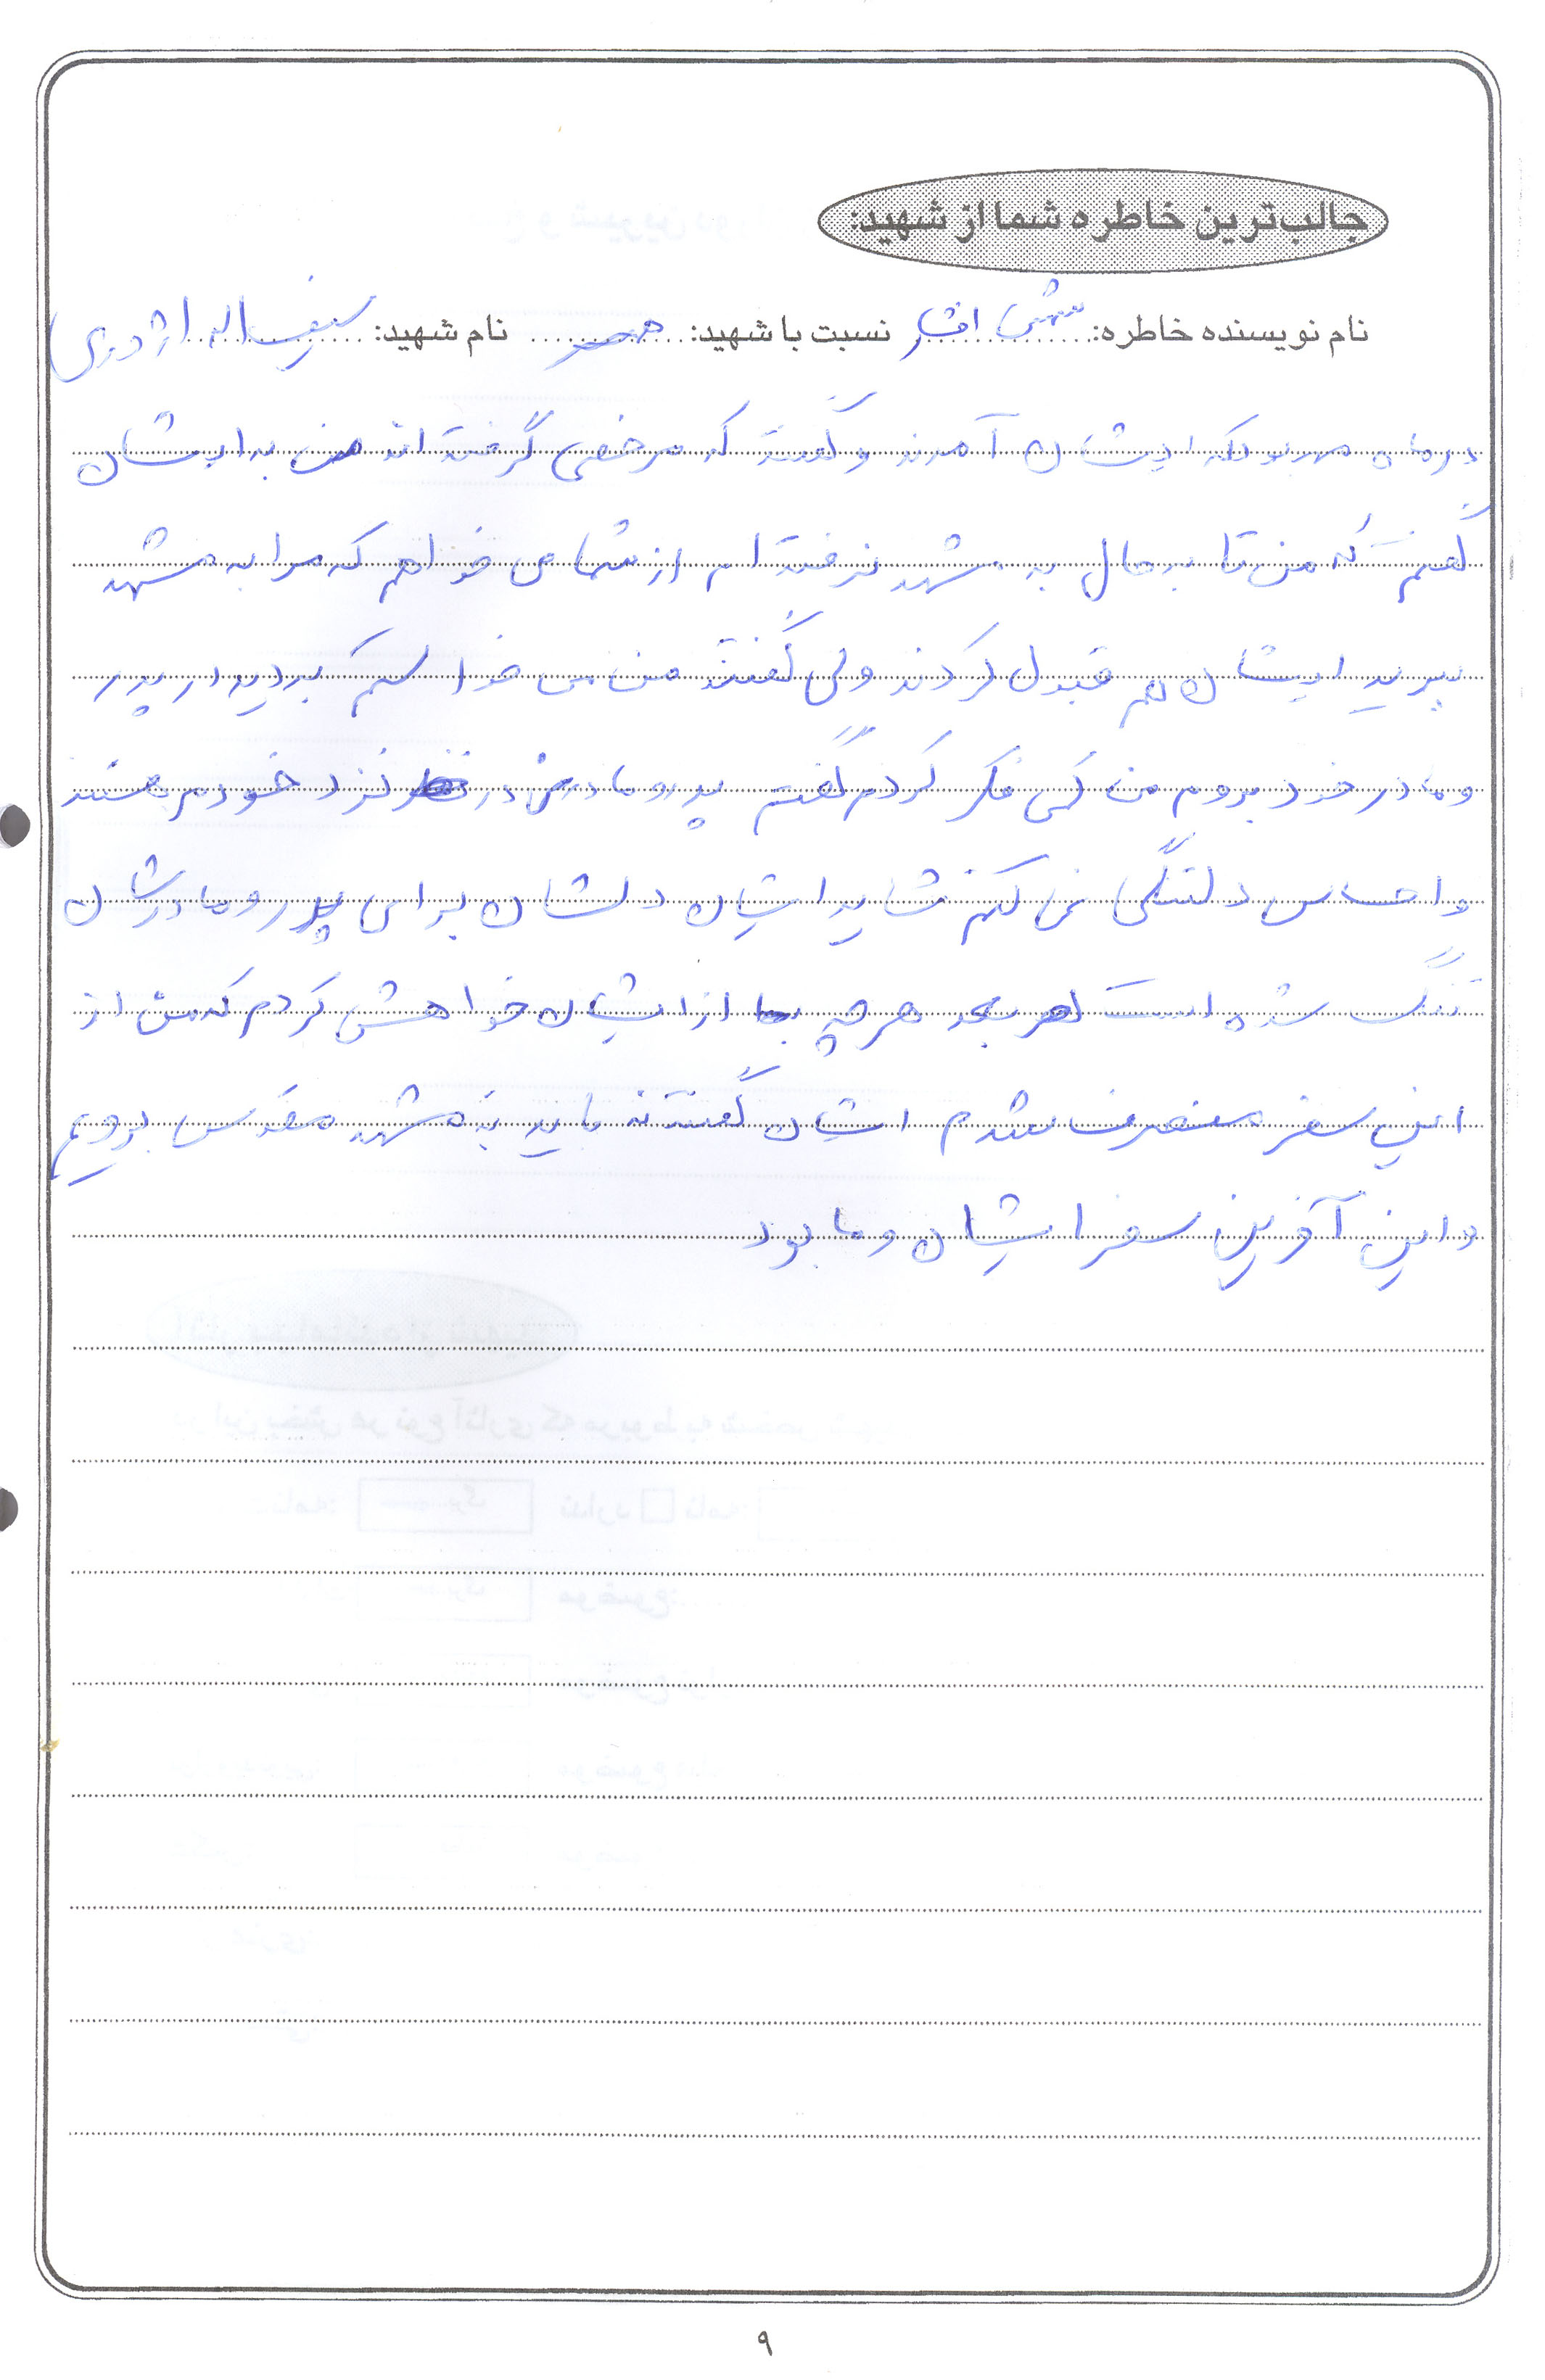 جالب‌ترین خاطره شما از شهید:
نام نویسنده خاطره: شمسی افشار نسبت با شهید: همسر نام شهید: سیف اله اژدری
در ماه مهر بود که ایشان آمدند و گفتند که مرخصی گرفته اند من به ایشان
گفتم که من تا به حال به مشهد نرفته ام از شما می خواهم که مرا به مشهد
ببرید ایشان هم قبول کردند ولی گفتند من می خواستم به دیدار پدر
و مادر خود بروم من کمی فکر کردم گفتم پدر و مادر من در نزد خودم هستند
و احساس دلتنگی نمی کنم شاید ایشان دلشان برای پدر و مادرشان
تنگ شده است بعد هر چه از ایشان خواهش کردم که من از
این سفر منصرف شدم ایشان گفتند نه باید به مشهد مقدس برویم
و این آخرین سفر ایشان و ما بود
۹